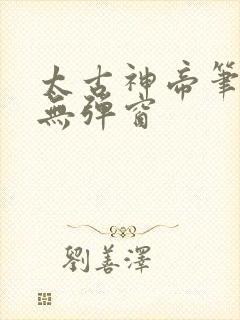 太古神帝筆
無彈窗
劉善澤